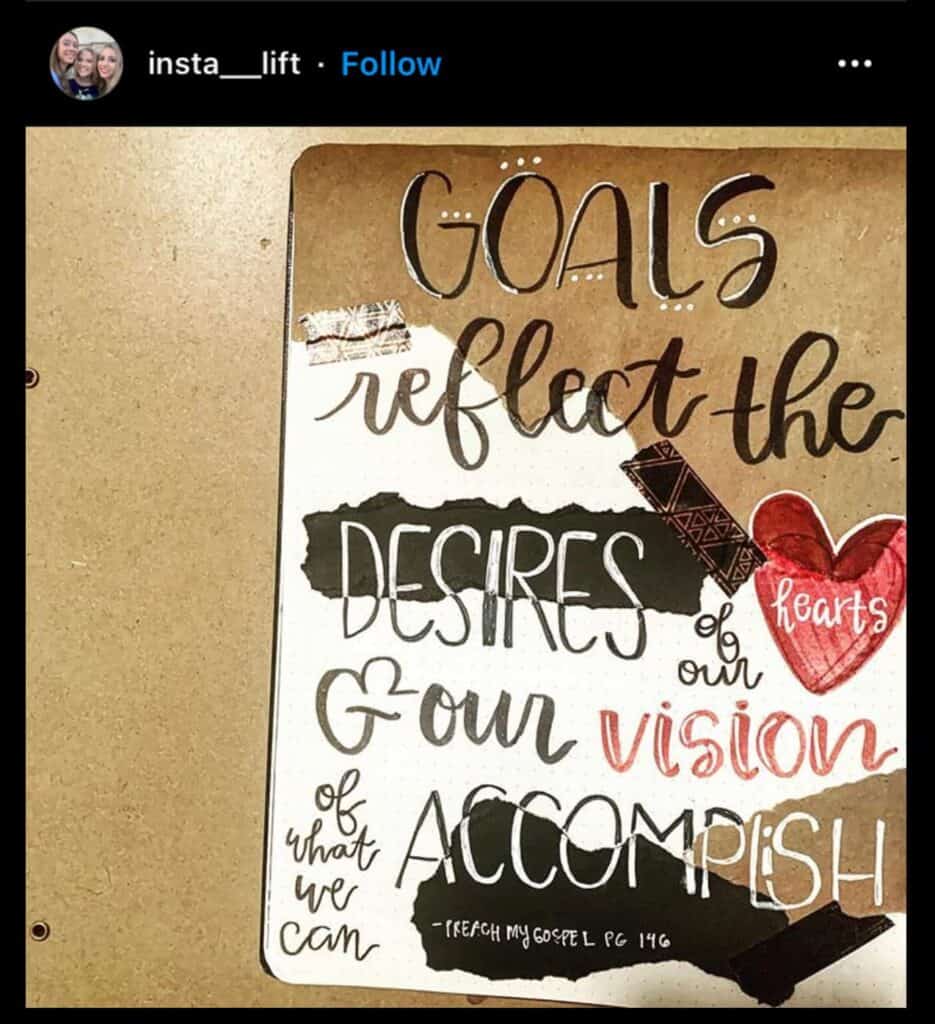 insta___lift · Follow
GOALS
reflect the
DESIRES
of our hearts
& our vision
of what we can
ACCOMPLISH
-PREACH MY GOSPEL PG 146